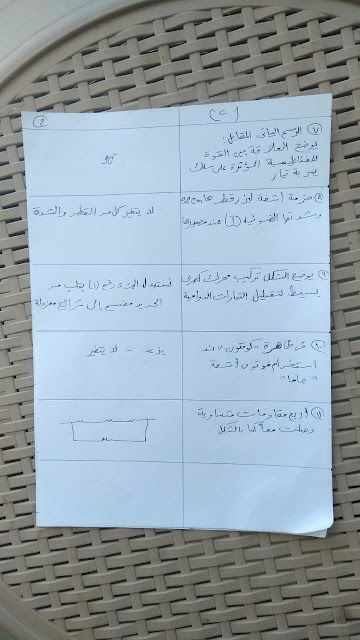 (ج)
٢
٧ الرسم البياني المقابل:
يوضح العلاقة بين القوة
المغناطيسية المؤثرة على سلك
يمر به تيار
30°
٨ حزمة أشعة ليزر قطرها
وشدتها الضوئية (I) عند مصدرها
لا يتغير كل من القطر والشدة
٩ يوضح الشكل تركيب محرك كهربي
بسيط لتقليل التيارات الدوامية
نستبدل الجزء رقم (١) بقلب من
الحديد مقسم إلى شرائح معزولة
١٠ في ظاهرة "كومتون" عند
استخدام فوتون أشعة
"جاما"
يزيد - لا يتغير
١١ أربع مقاومات متساوية
وصلت معاً كما بالشكل